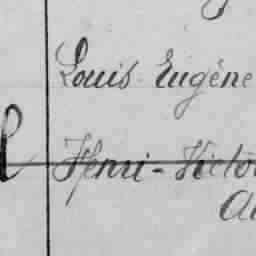 Louis Eugène
Henri-Victo